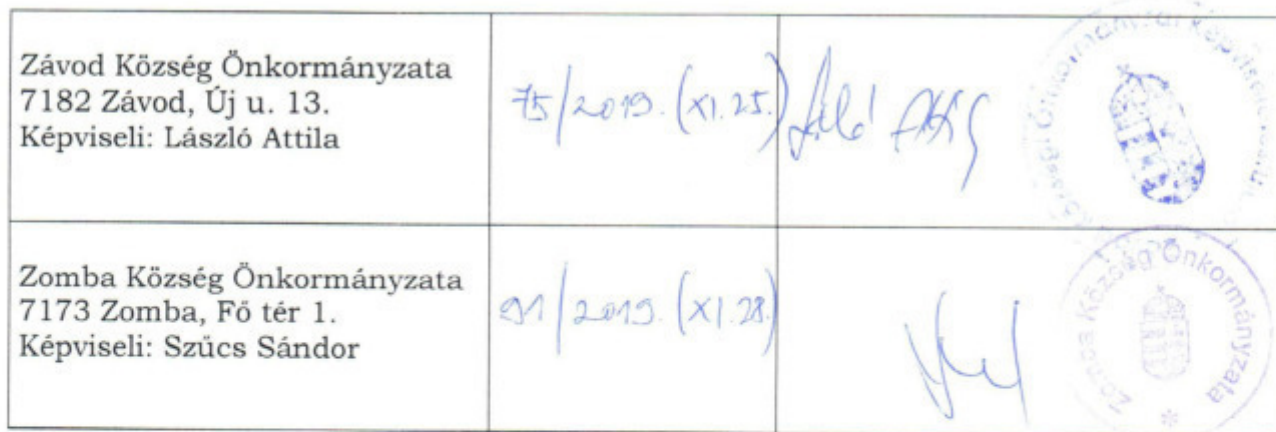 Závod Község Önkormányzata
7182 Závod, Új u. 13.
Képviseli: László Attila
75/2019. (XI.25.)
Községi Önkormányzat Képviselőtestü
Zomba Község Önkormányzata
7173 Zomba, Fő tér 1.
Képviseli: Szűcs Sándor
91/2019. (XI.28.)
Zomba Község Önkormányzata *